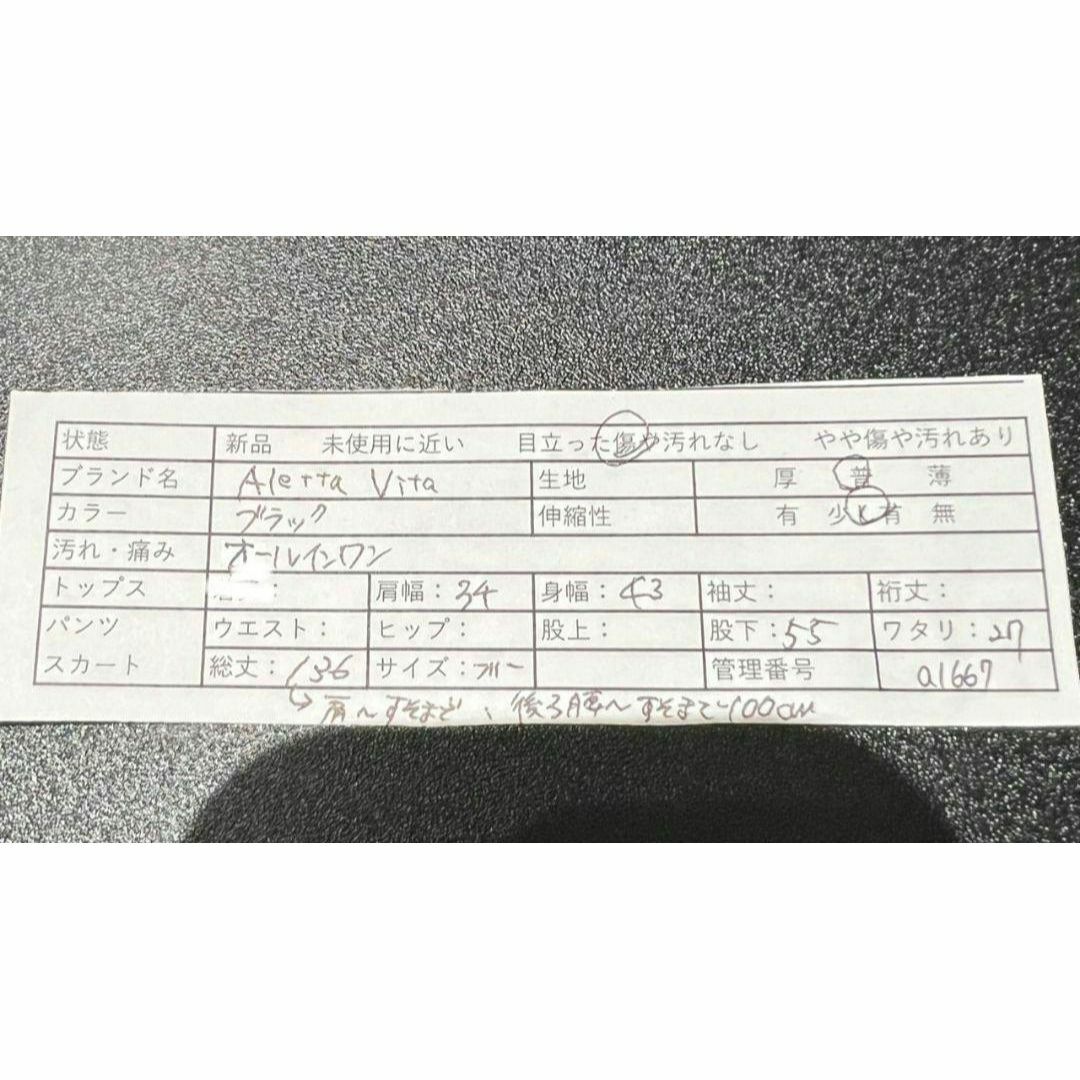 状態 新品 未使用に近い 目立った傷や汚れなし やや傷や汚れあり
ブランド名 Aletta Vita 生地 厚 普 薄
カラー ブラック 伸縮性 有 少し有 無
汚れ・痛み オールインワン
トップス 肩幅：34 身幅：43 袖丈： 裄丈：
パンツ ウエスト： ヒップ： 股上： 股下：55 ワタリ：27
スカート 総丈：136 サイズ：フリー 管理番号 a1667
→肩～すそまで、後ろ腰～すそまで100cm